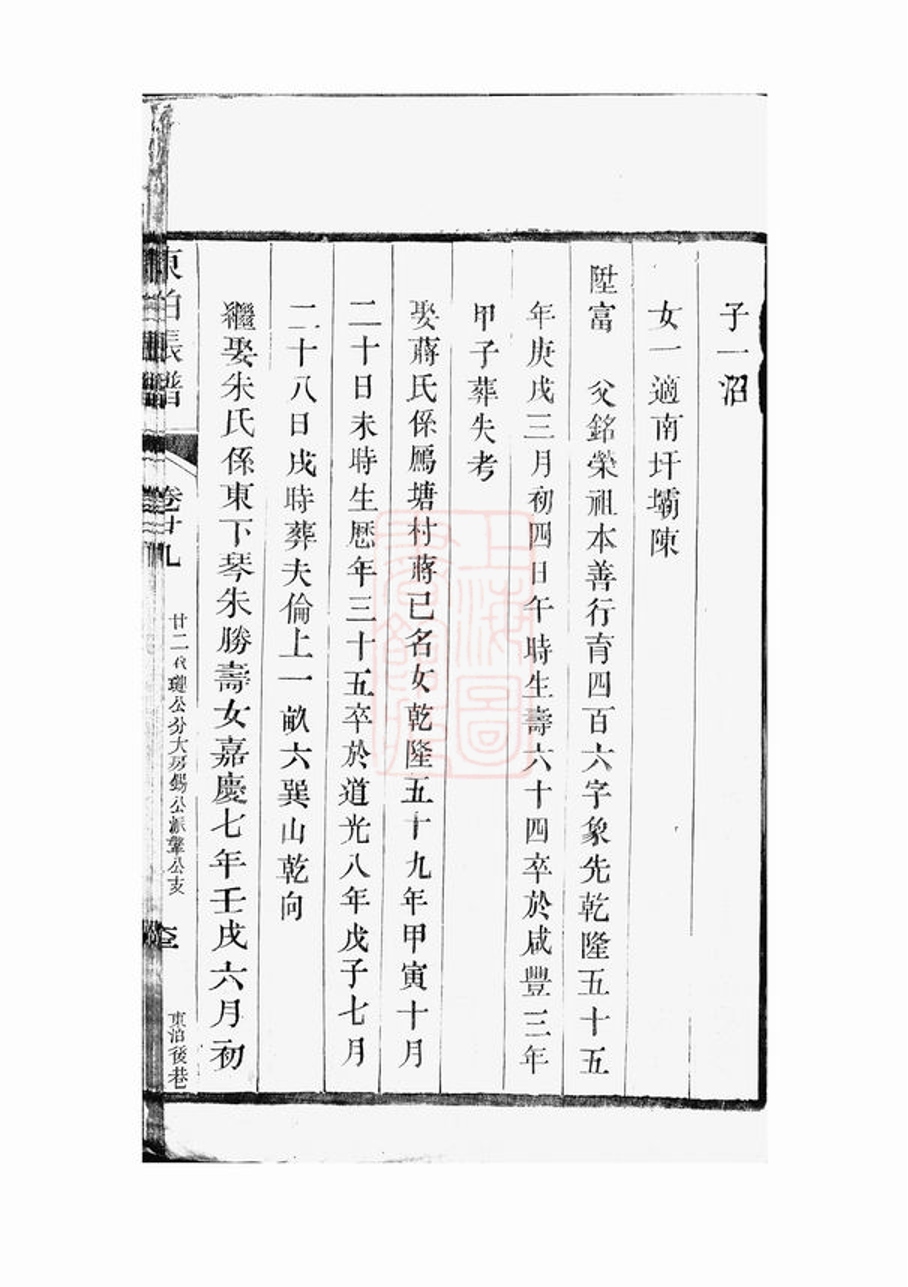 子一沼
女一適南圩壩陳
陞富 父銘榮祖本善行育四百六字象先乾隆五十五
年庚戌三月初四日午時生壽六十四卒於咸豐三年
甲子葬失考
娶蔣氏係鴈塘村蔣已名女乾隆五十九年甲寅十月
二十日未時生歷年三十五卒於道光八年戊子七月
二十八日戌時葬夫倫上一畝六巽山乾向
繼娶朱氏係東下琴朱勝壽女嘉慶七年壬戌六月初
東泊張譜 卷廿九 廿二代璉公分大房錫公派肇公支 東泊後巷
上海圖
書館藏